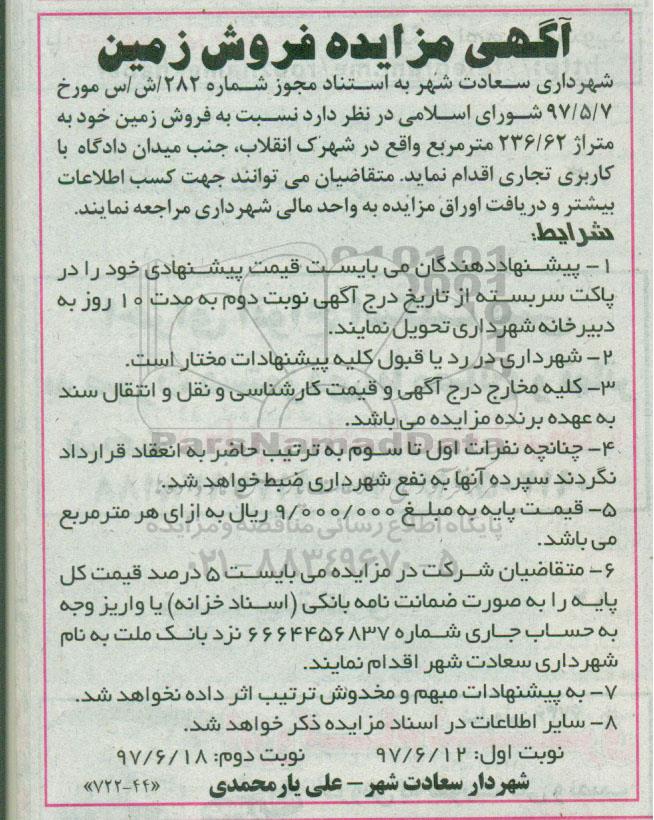 آگهی مزایده فروش زمین
شهرداری سعادت شهر به استناد مجوز شماره ۲۸۲/ش/س مورخ
۹۷/۵/۷ شورای اسلامی در نظر دارد نسبت به فروش زمین خود به
متراژ ۲۳۶/۶۲ مترمربع واقع در شهرک انقلاب، جنب میدان دادگاه با
کاربری تجاری اقدام نماید. متقاضیان می توانند جهت کسب اطلاعات
بیشتر و دریافت اوراق مزایده به واحد مالی شهرداری مراجعه نمایند.
شرایط:
۱- پیشنهاددهندگان می بایست قیمت پیشنهادی خود را در
پاکت سربسته از تاریخ درج آگهی نوبت دوم به مدت ۱۰ روز به
دبیرخانه شهرداری تحویل نمایند.
۲- شهرداری در رد یا قبول کلیه پیشنهادات مختار است.
۳- کلیه مخارج درج آگهی و قیمت کارشناسی و نقل و انتقال سند
به عهده برنده مزایده می باشد.
ParsNamadData
۴- چنانچه نفرات اول تا سوم به ترتیب حاضر به انعقاد قرارداد
نگردند سپرده آنها به نفع شهرداری ضبط خواهد شد.
۵- قیمت پایه به مبلغ ۹/۰۰۰/۰۰۰ ریال به ازای هر مترمربع
می باشد.
پایگاه اطلاع رسانی مناقصه و مزایده
۰۲۱-۸۸۳۴۹۶۷۰-۵
۶- متقاضیان شرکت در مزایده می بایست ۵ درصد قیمت کل
پایه را به صورت ضمانت نامه بانکی (اسناد خزانه) یا واریز وجه
به حساب جاری شماره ۶۶۶۴۴۵۶۸۳۷ نزد بانک ملت به نام
شهرداری سعادت شهر اقدام نمایند.
۷- به پیشنهادات مبهم و مخدوش ترتیب اثر داده نخواهد شد.
۸- سایر اطلاعات در اسناد مزایده ذکر خواهد شد.
نوبت اول: ۹۷/۶/۱۲ نوبت دوم: ۹۷/۶/۱۸
شهردار سعادت شهر – علی یارمحمدی «۷۲۲-۴۴»